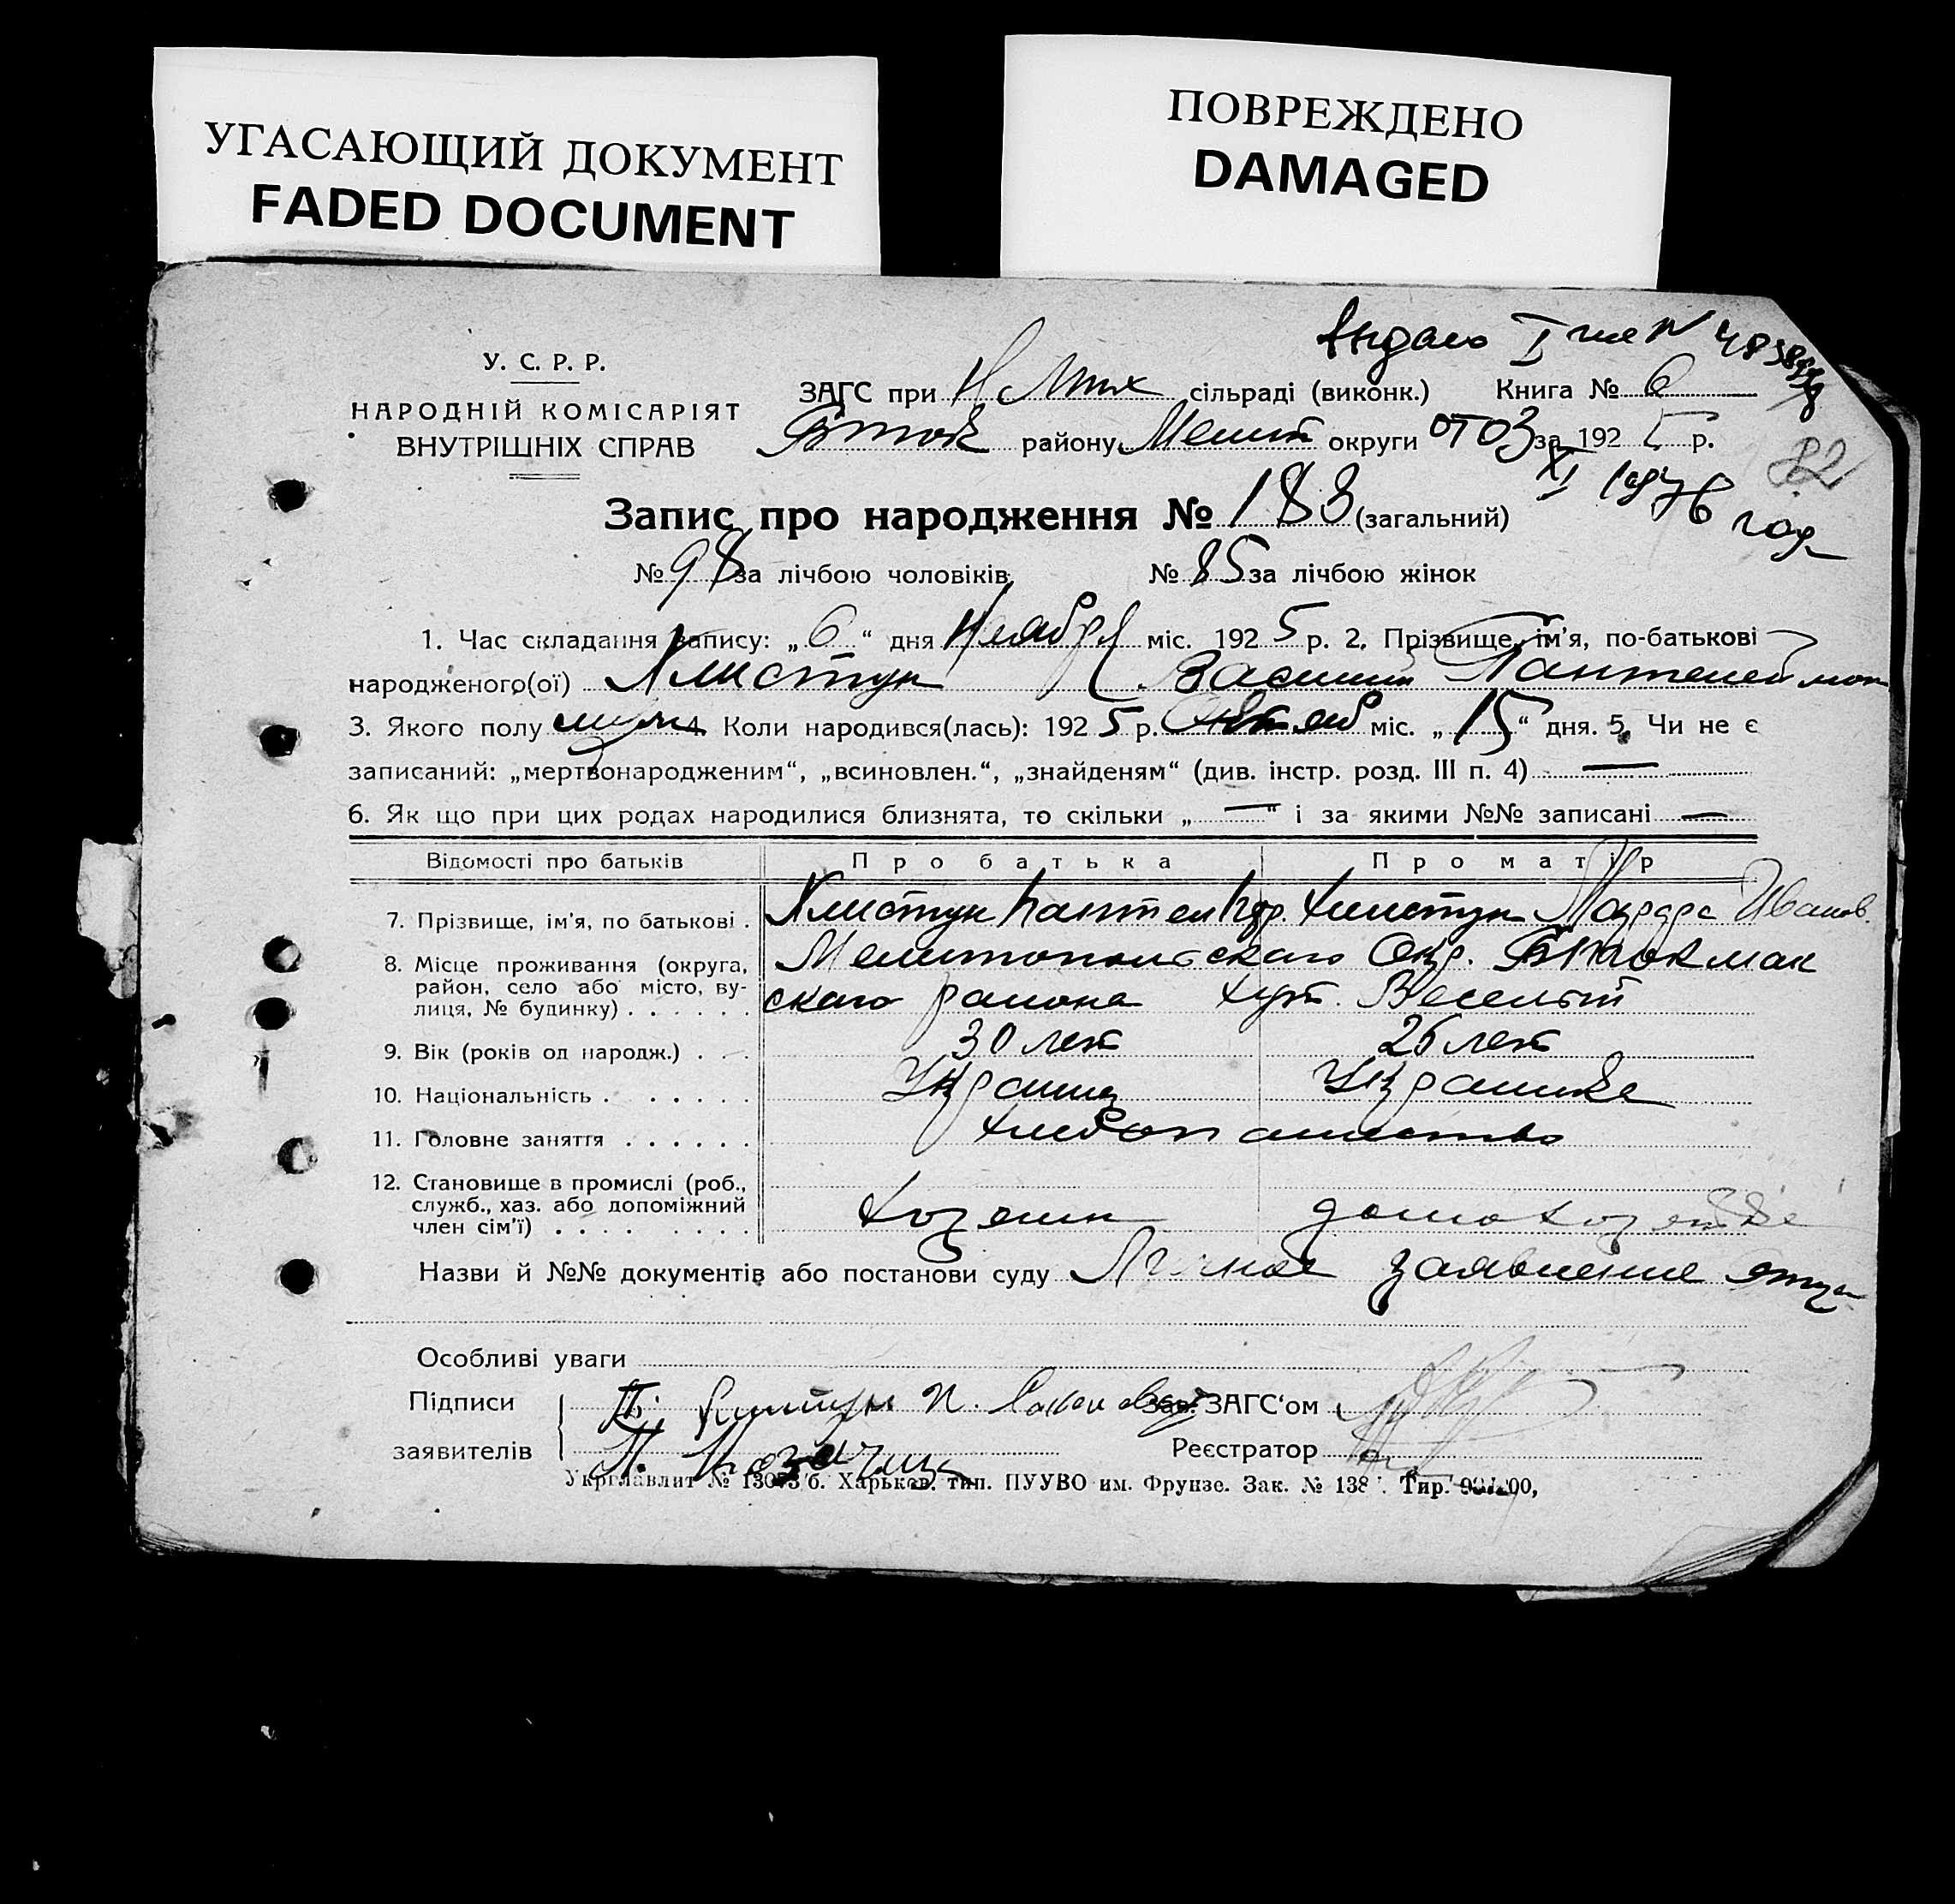 УГАСАЮЩИЙ ДОКУМЕНТ
FADED DOCUMENT
ПОВРЕЖДЕНО
DAMAGED
У. С. Р. Р.
НАРОДНІЙ КОМІСАРІЯТ
ВНУТРІШНІХ СПРАВ
ЗАГС при сільраді (виконк.) Книга № 6
району Мелит округи за 1925 р.
от 03 XI 1976 год
82
Запис про народження № 188 (загальний)
№ 98 за лічбою чоловіків № 85 за лічбою жінок
1. Час складання запису: „6“ дня Ноября міс. 1925 р. 2. Прізвище, ім'я, по-батькові
народженого(ої) Хлистун Василий Пантелеймон
3. Якого полу муж 4. Коли народився(лась): 1925 р. Октяб міс. „15“ дня. 5. Чи не є
записаний: „мертвонародженим“, „всиновлен.“, „знайденям“ (див. інстр. розд. III п. 4) —
6. Як що при цих родах народилися близнята, то скільки „—“ і за якими №№ записані —
Відомості про батьків Про батька Про матір
7. Прізвище, ім'я, по батькові . Хлистун Пантел Хлистун Иванов.
8. Місце проживання (округа, Мелитопольскаго Окр. Бтокмак
район, село або місто, ву- скаго района хут. Веселый
лиця, № будинку) . . . . . .
9. Вік (років од народж.) . . . 30 лет 26 лет
10. Національність . . . . . . Украинец Украинка
11. Головне заняття . . . . . . хлебопашество
12. Становище в промислі (роб.,
служб., хаз. або допоміжний хозяин домохозяйка
член сім'ї) . . . . . . . . .
Назви й №№ документів або постанови суду Личное заявление отца
Особливі уваги
Підписи Зав. ЗАГС'ом
заявителів Реєстратор
Укрглавлит № 13073/б. Харьков. тип. ПУУВО им. Фрунзе. Зак. № 138 Тир.